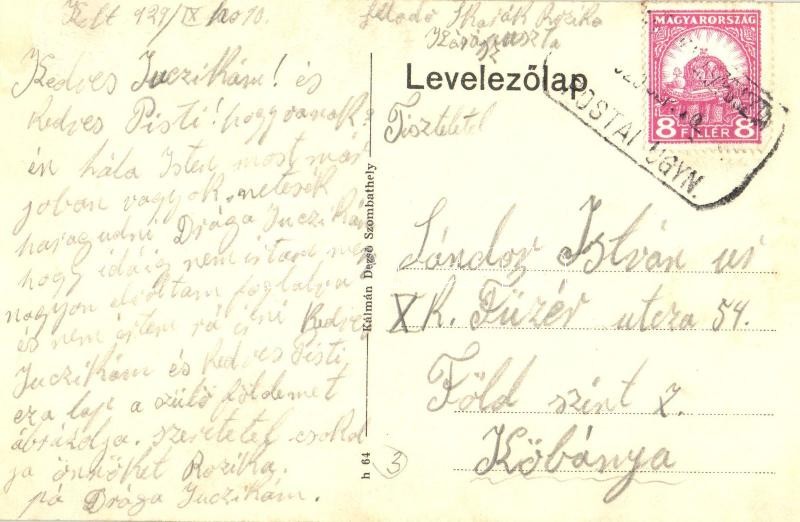 Kelt 929/IX hó 10.
Kedves Juczikám! és
kedves Pisti! hogy vanak?
én hála Isten most már
joban vagyok. netesék
haragudni Drága Juczikám
hogy idáig nem irtam mer
nagyon el voltam foglalva
és nem értem rá irni Kedves
Juczikám és kedves Pisti
eza lap a szülő földemet
ábrázolja. szeretetel csokol
ja önnöket Rozika.
pá Drága Juczikám.
feladó Rozika
Levelezőlap
Tisztelétel
MAGYARORSZÁG
8 FILLÉR 8
POSTAI ÜGYN.
Sándor István úr
X k. Füzér utcza 54.
Föld szint 2.
Kőbánya
Kálmán Dezső Szombathely
h 64
3